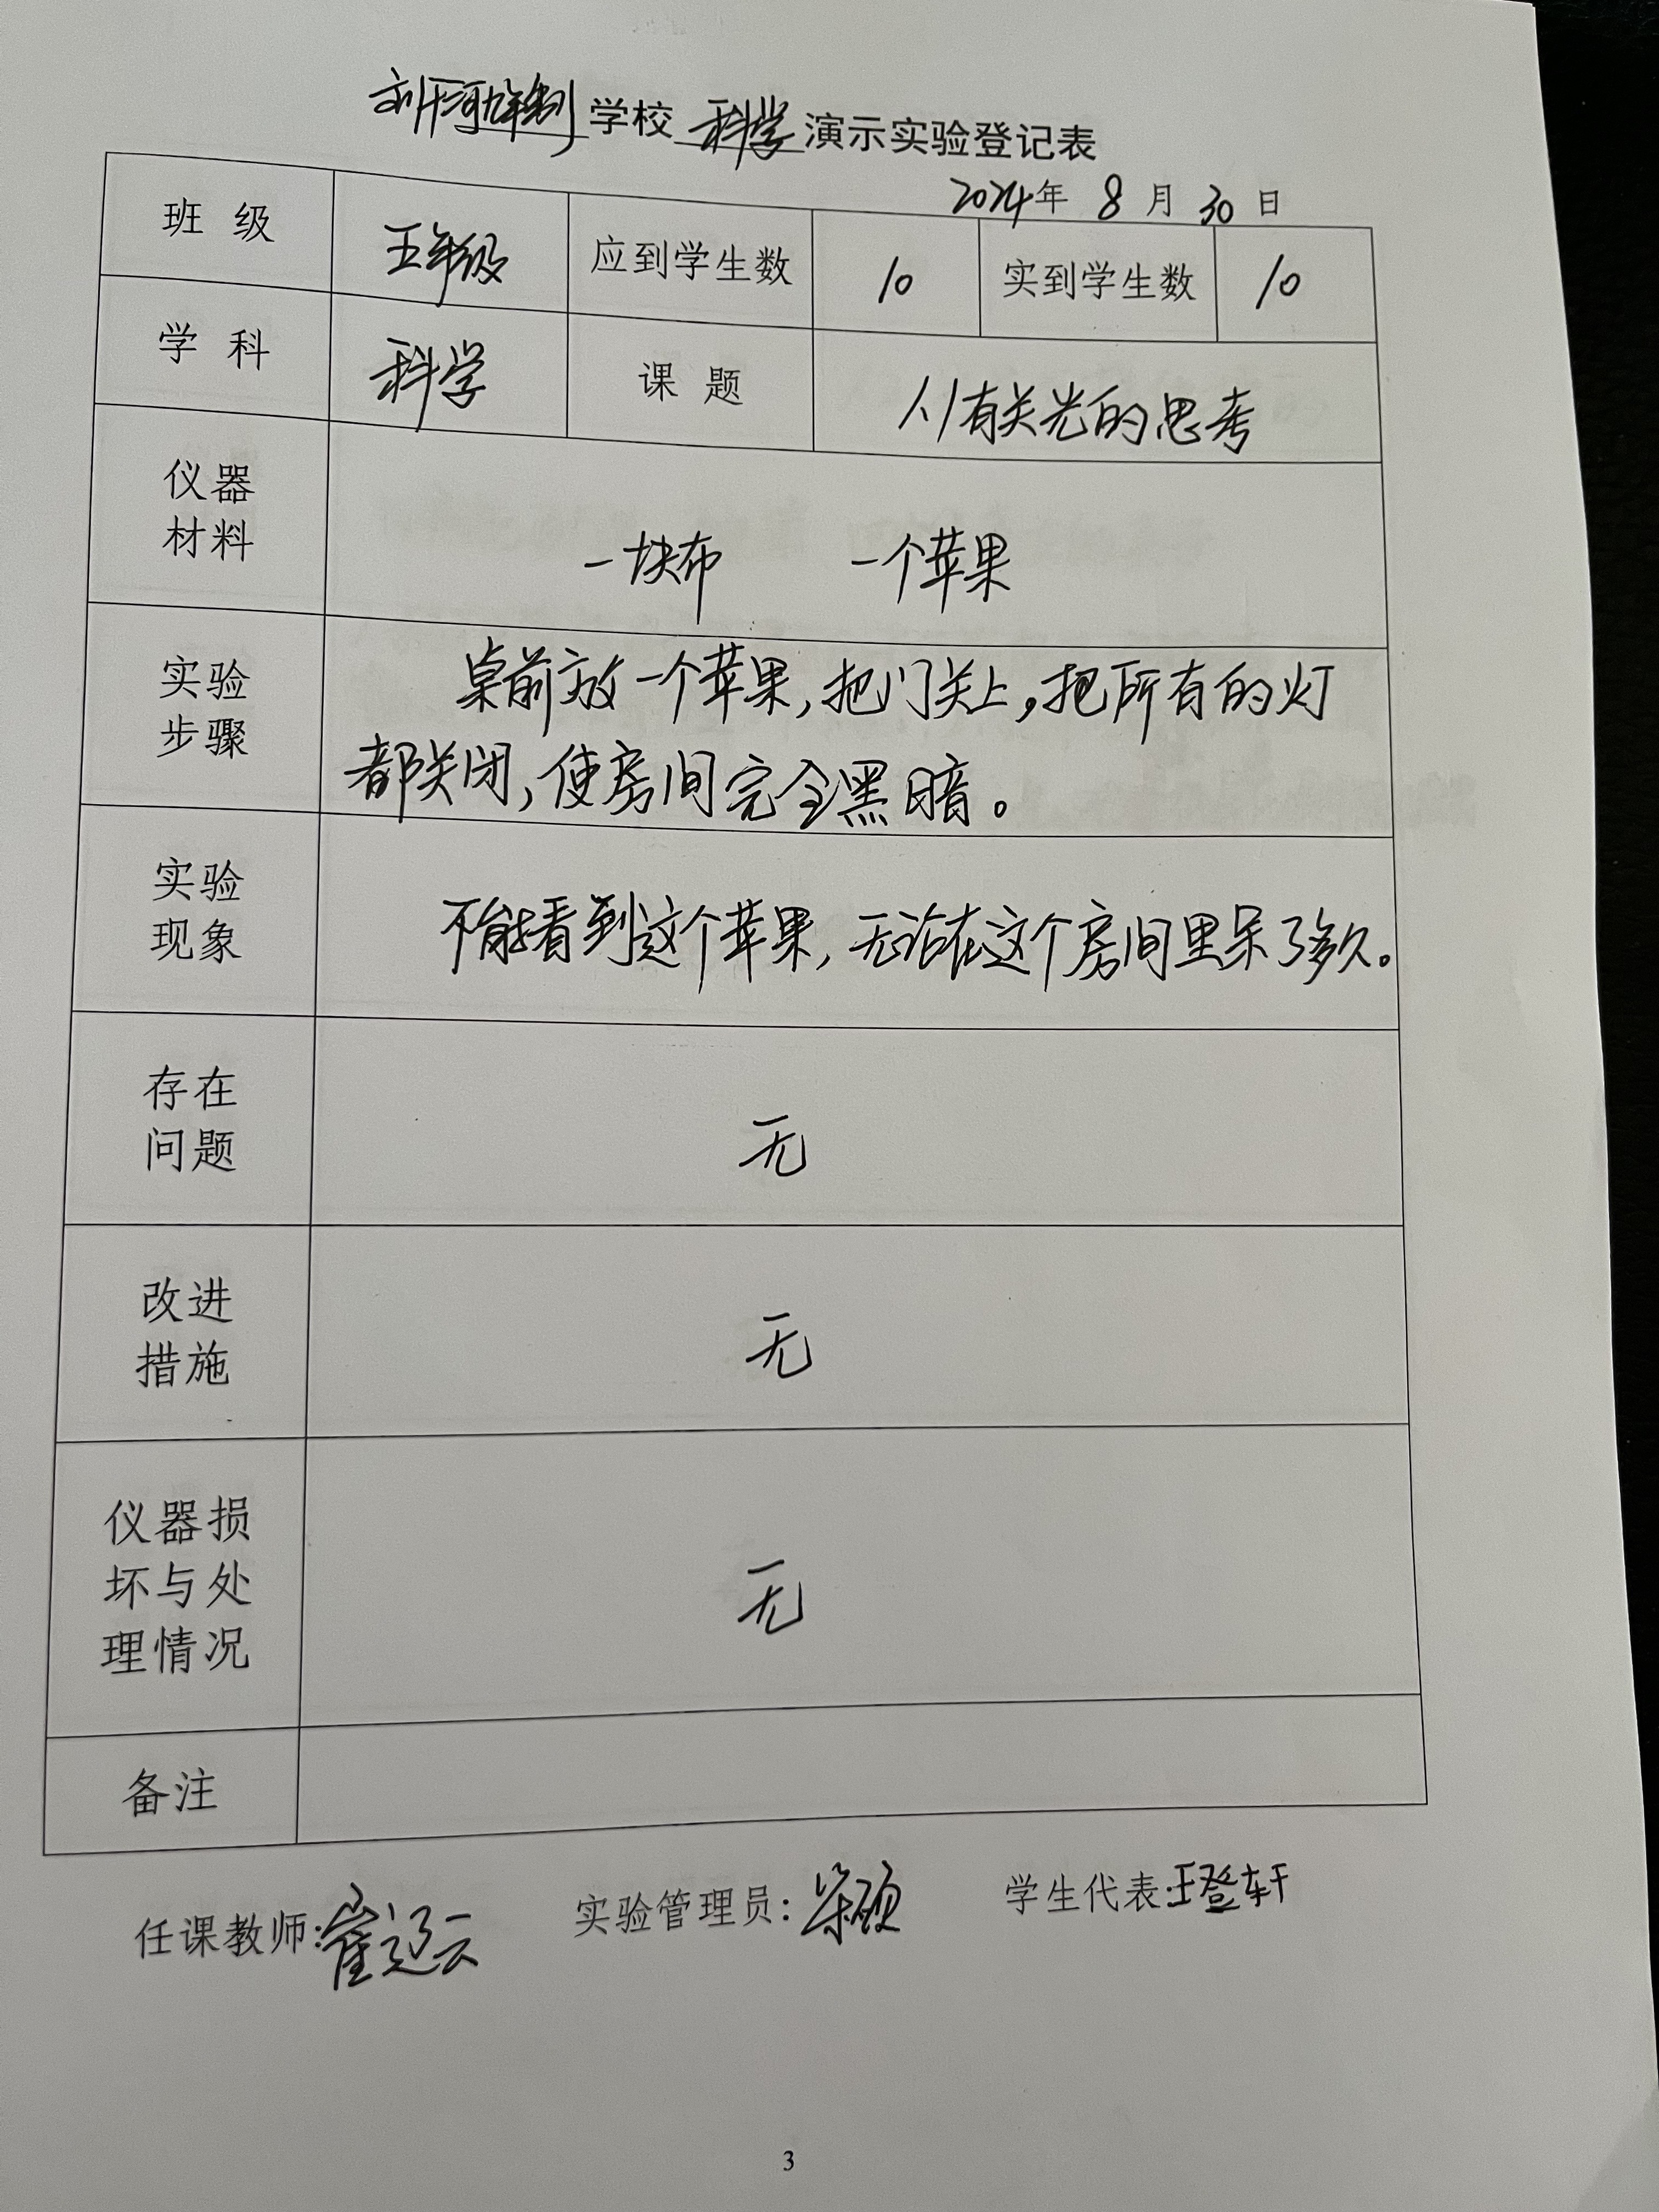 刘干河九年制学校 科学 演示实验登记表
2024年 8 月 30 日
班 级 五年级 应到学生数 10 实到学生数 10
学 科 科学 课 题 1、1有关光的思考
仪器
材料
一块布 一个苹果
实验
步骤
桌前放一个苹果,把门关上,把所有的灯
都关闭,使房间完全黑暗。
实验
现象
不能看到这个苹果,无论在这个房间里呆了多久。
存在
问题
无
改进
措施
无
仪器损
坏与处
理情况
无
备注
任课教师:崔辽云 实验管理员: 学生代表:王登轩
3